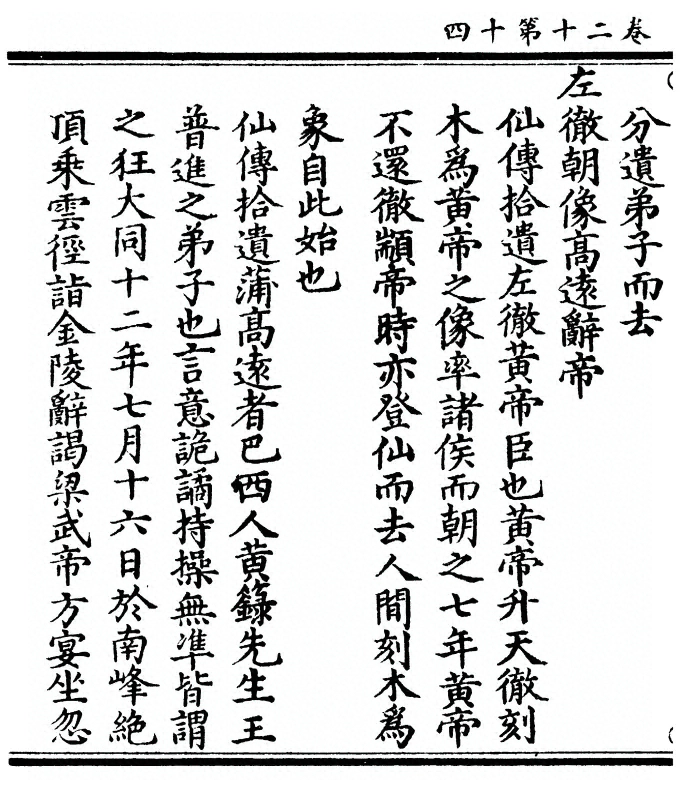 卷二十第十四
分遺弟子而去
左徹朝像高遠辭帝
仙傳拾遺左徹黃帝臣也黃帝升天徹刻
木爲黃帝之像率諸侯而朝之七年黃帝
不還徹顓帝時亦登仙而去人間刻木爲
象自此始也
仙傳拾遺蒲高遠者巴西人黃籙先生王
普進之弟子也言意詭譎持操無準皆謂
之狂大同十二年七月十六日於南峰絶
頂乘雲徑詣金陵辭謁梁武帝方宴坐忽